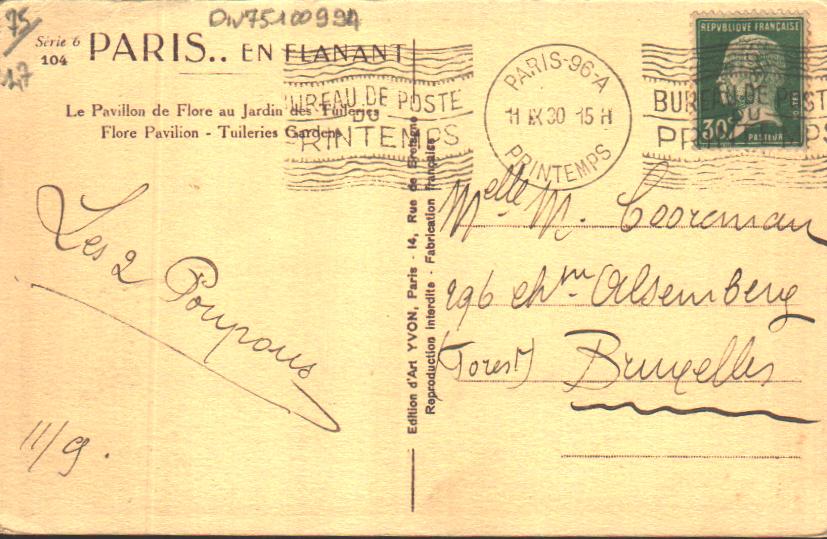 75
17
Div75100994
Série 6
104
PARIS.. EN FLANANT
Le Pavillon de Flore au Jardin des Tuileries
Flore Pavilion - Tuileries Gardens
BUREAU DE POSTE
DU
PRINTEMPS
PARIS-96-A
11 IX 30 15 H
PRINTEMPS
BUREAU DE POST
DU
PRINTEMPS
REPVBLIQVE FRANÇAISE
POSTES
30c
PASTEUR
Les 2 Poupous
11/9.
Edition d'Art YVON, Paris - 14, Rue de Bretagne
Reproduction interdite - Fabrication française
Melle M. Cooreman
296 chée Alsemberg
(Forest) Bruxelles